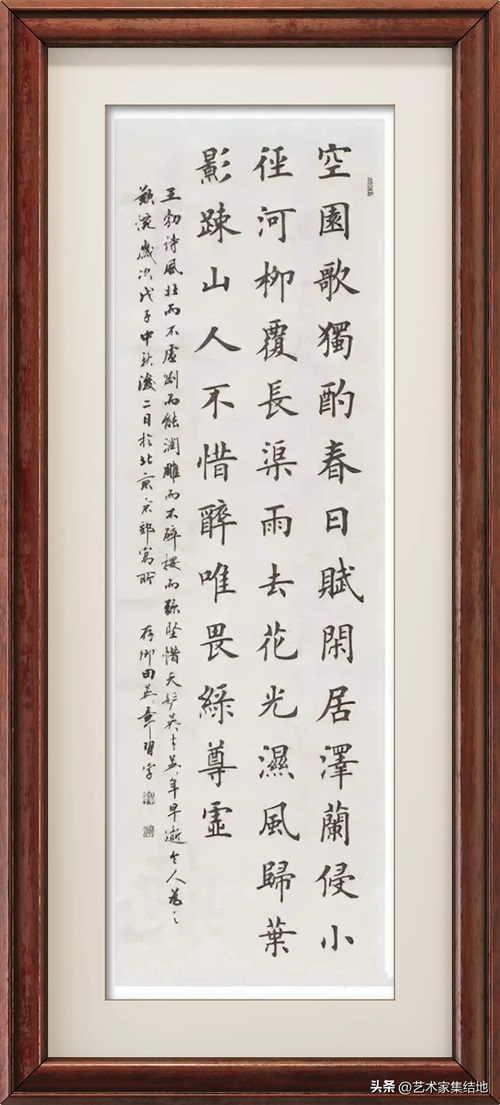 空園歌獨酌春日賦閑居澤蘭侵小
徑河柳覆長渠雨去花光濕風歸葉
影踈山人不惜醉唯畏綠尊虛
王勃詩風壯而不虛剛而能潤雕而不碎按而彌堅惜天妒英才英年早逝令人為之
歎惋歲次戊子中秋後二日於北京京郊寓所 存卿田英章習字
头条 @艺术家集结地